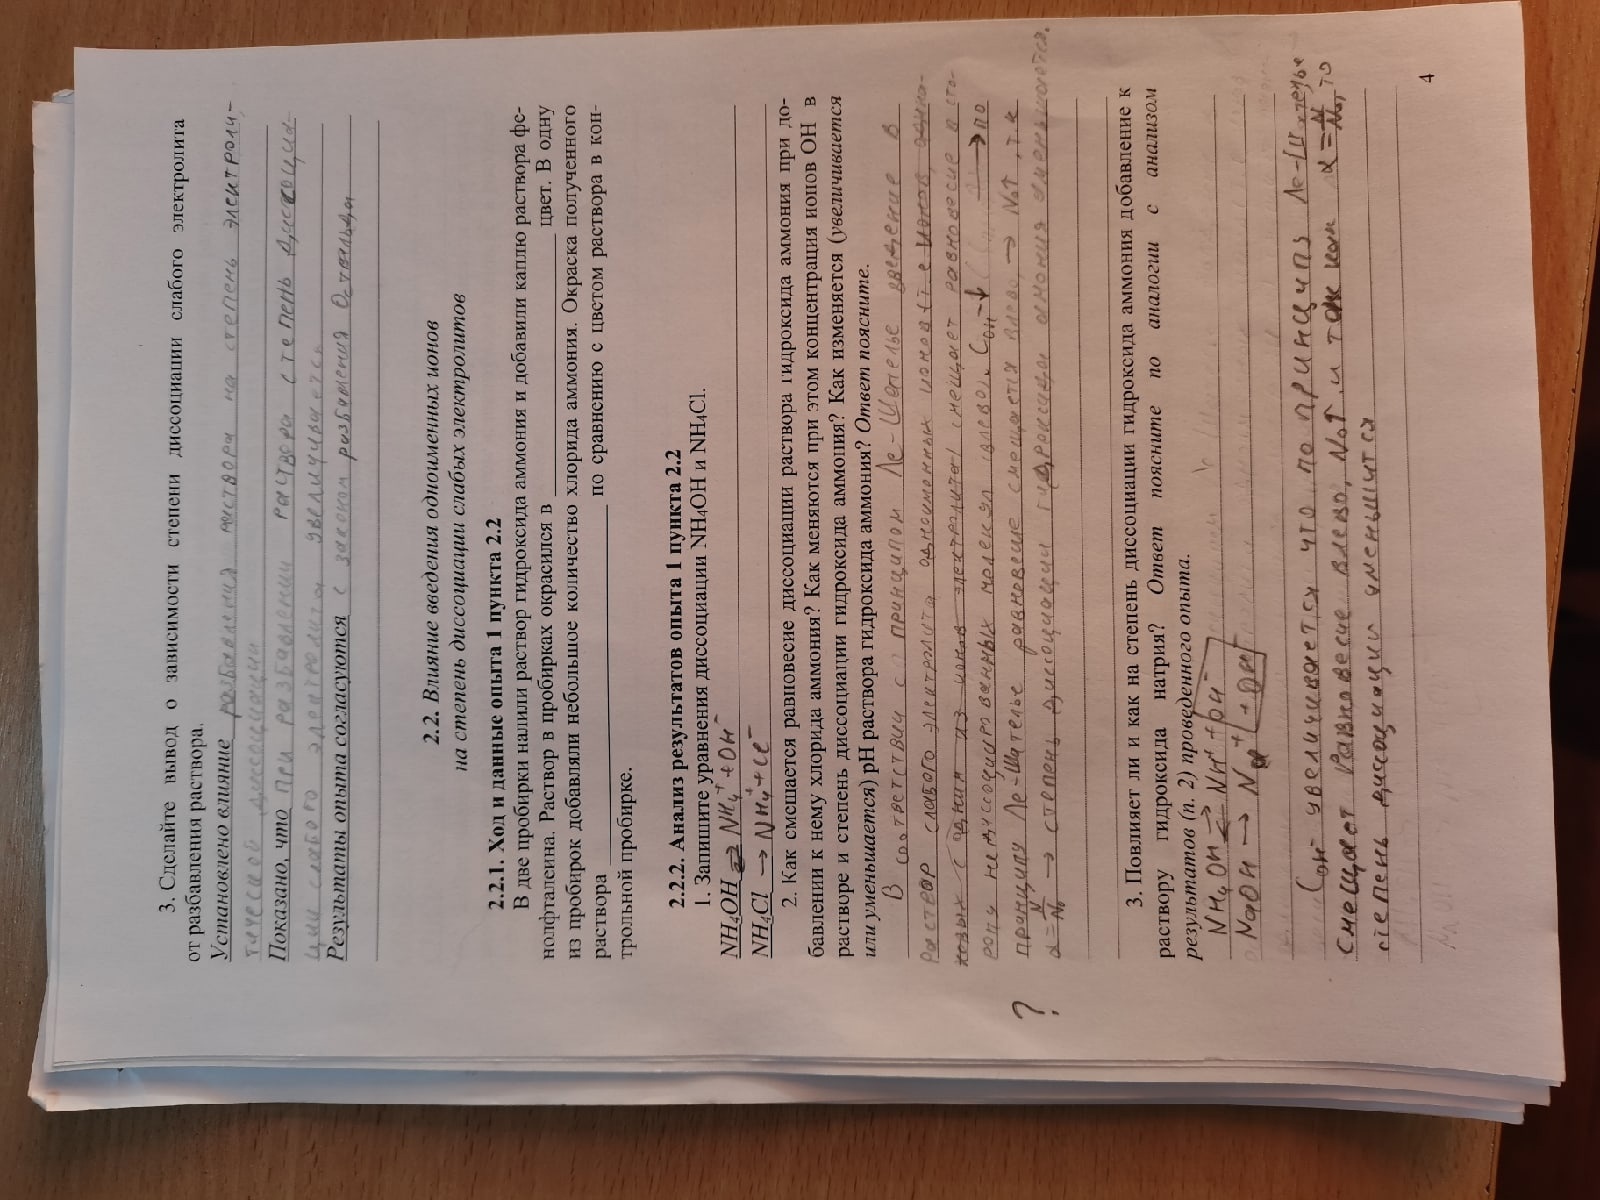 3. Сделайте вывод о зависимости степени диссоциации слабого электролита
от разбавления раствора.
Установлено влияние разбавления раствора на степень электроли-
тической диссоциации
Показано, что при разбавлении раствора степень диссоциа-
ции слабого электролита увеличивается
Результаты опыта согласуются с законом разбавления Оствальда
2.2. Влияние введения одноименных ионов
на степень диссоциации слабых электролитов
2.2.1. Ход и данные опыта 1 пункта 2.2
В две пробирки налили раствор гидроксида аммония и добавили каплю раствора фе-
нолфталеина. Раствор в пробирках окрасился в ____________ цвет. В одну
из пробирок добавляли небольшое количество хлорида аммония. Окраска полученного
раствора ____________ по сравнению с цветом раствора в кон-
трольной пробирке.
2.2.2. Анализ результатов опыта 1 пункта 2.2
1. Запишите уравнения диссоциации NH₄OH и NH₄Cl.
NH₄OH ⇄ NH₄⁺ + OH⁻
NH₄Cl → NH₄⁺ + Cl⁻
2. Как смещается равновесие диссоциации раствора гидроксида аммония при до-
бавлении к нему хлорида аммония? Как меняются при этом концентрация ионов OH в
растворе и степень диссоциации гидроксида аммония? Как изменяется (увеличивается
или уменьшается) pH раствора гидроксида аммония? Ответ поясните.
В соответствии с принципом Ле-Шателье введение в
раствор слабого электролита одноименных ионов (т.е ионов, одина-
ковых с одним из ионов электролита) смещает равновесие в сто-
рону недиссоциированных молекул (влево). C_OH⁻↓ → по
принципу Ле-Шателье равновесие смещается влево → N₀↑, т.к
? α = N/N₀ → степень диссоциации гидроксида амония уменьшается.
3. Повлияет ли и как на степень диссоциации гидроксида аммония добавление к
раствору гидроксида натрия? Ответ поясните по аналогии с анализом
результатов (п. 2) проведенного опыта.
NH₄OH ⇄ NH⁺ + OH⁻
NaOH → Na⁺ + OH⁻
C_OH⁻ увеличивается что по принципу Ле-Шателье
смещает равновесие влево, N₀↑ и так как α = N/N₀, то
степень диссоциации уменьшится
4